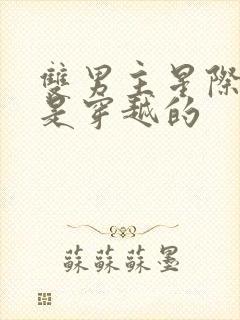 雙男主星際
是穿越的
蘇蘇蘇墨